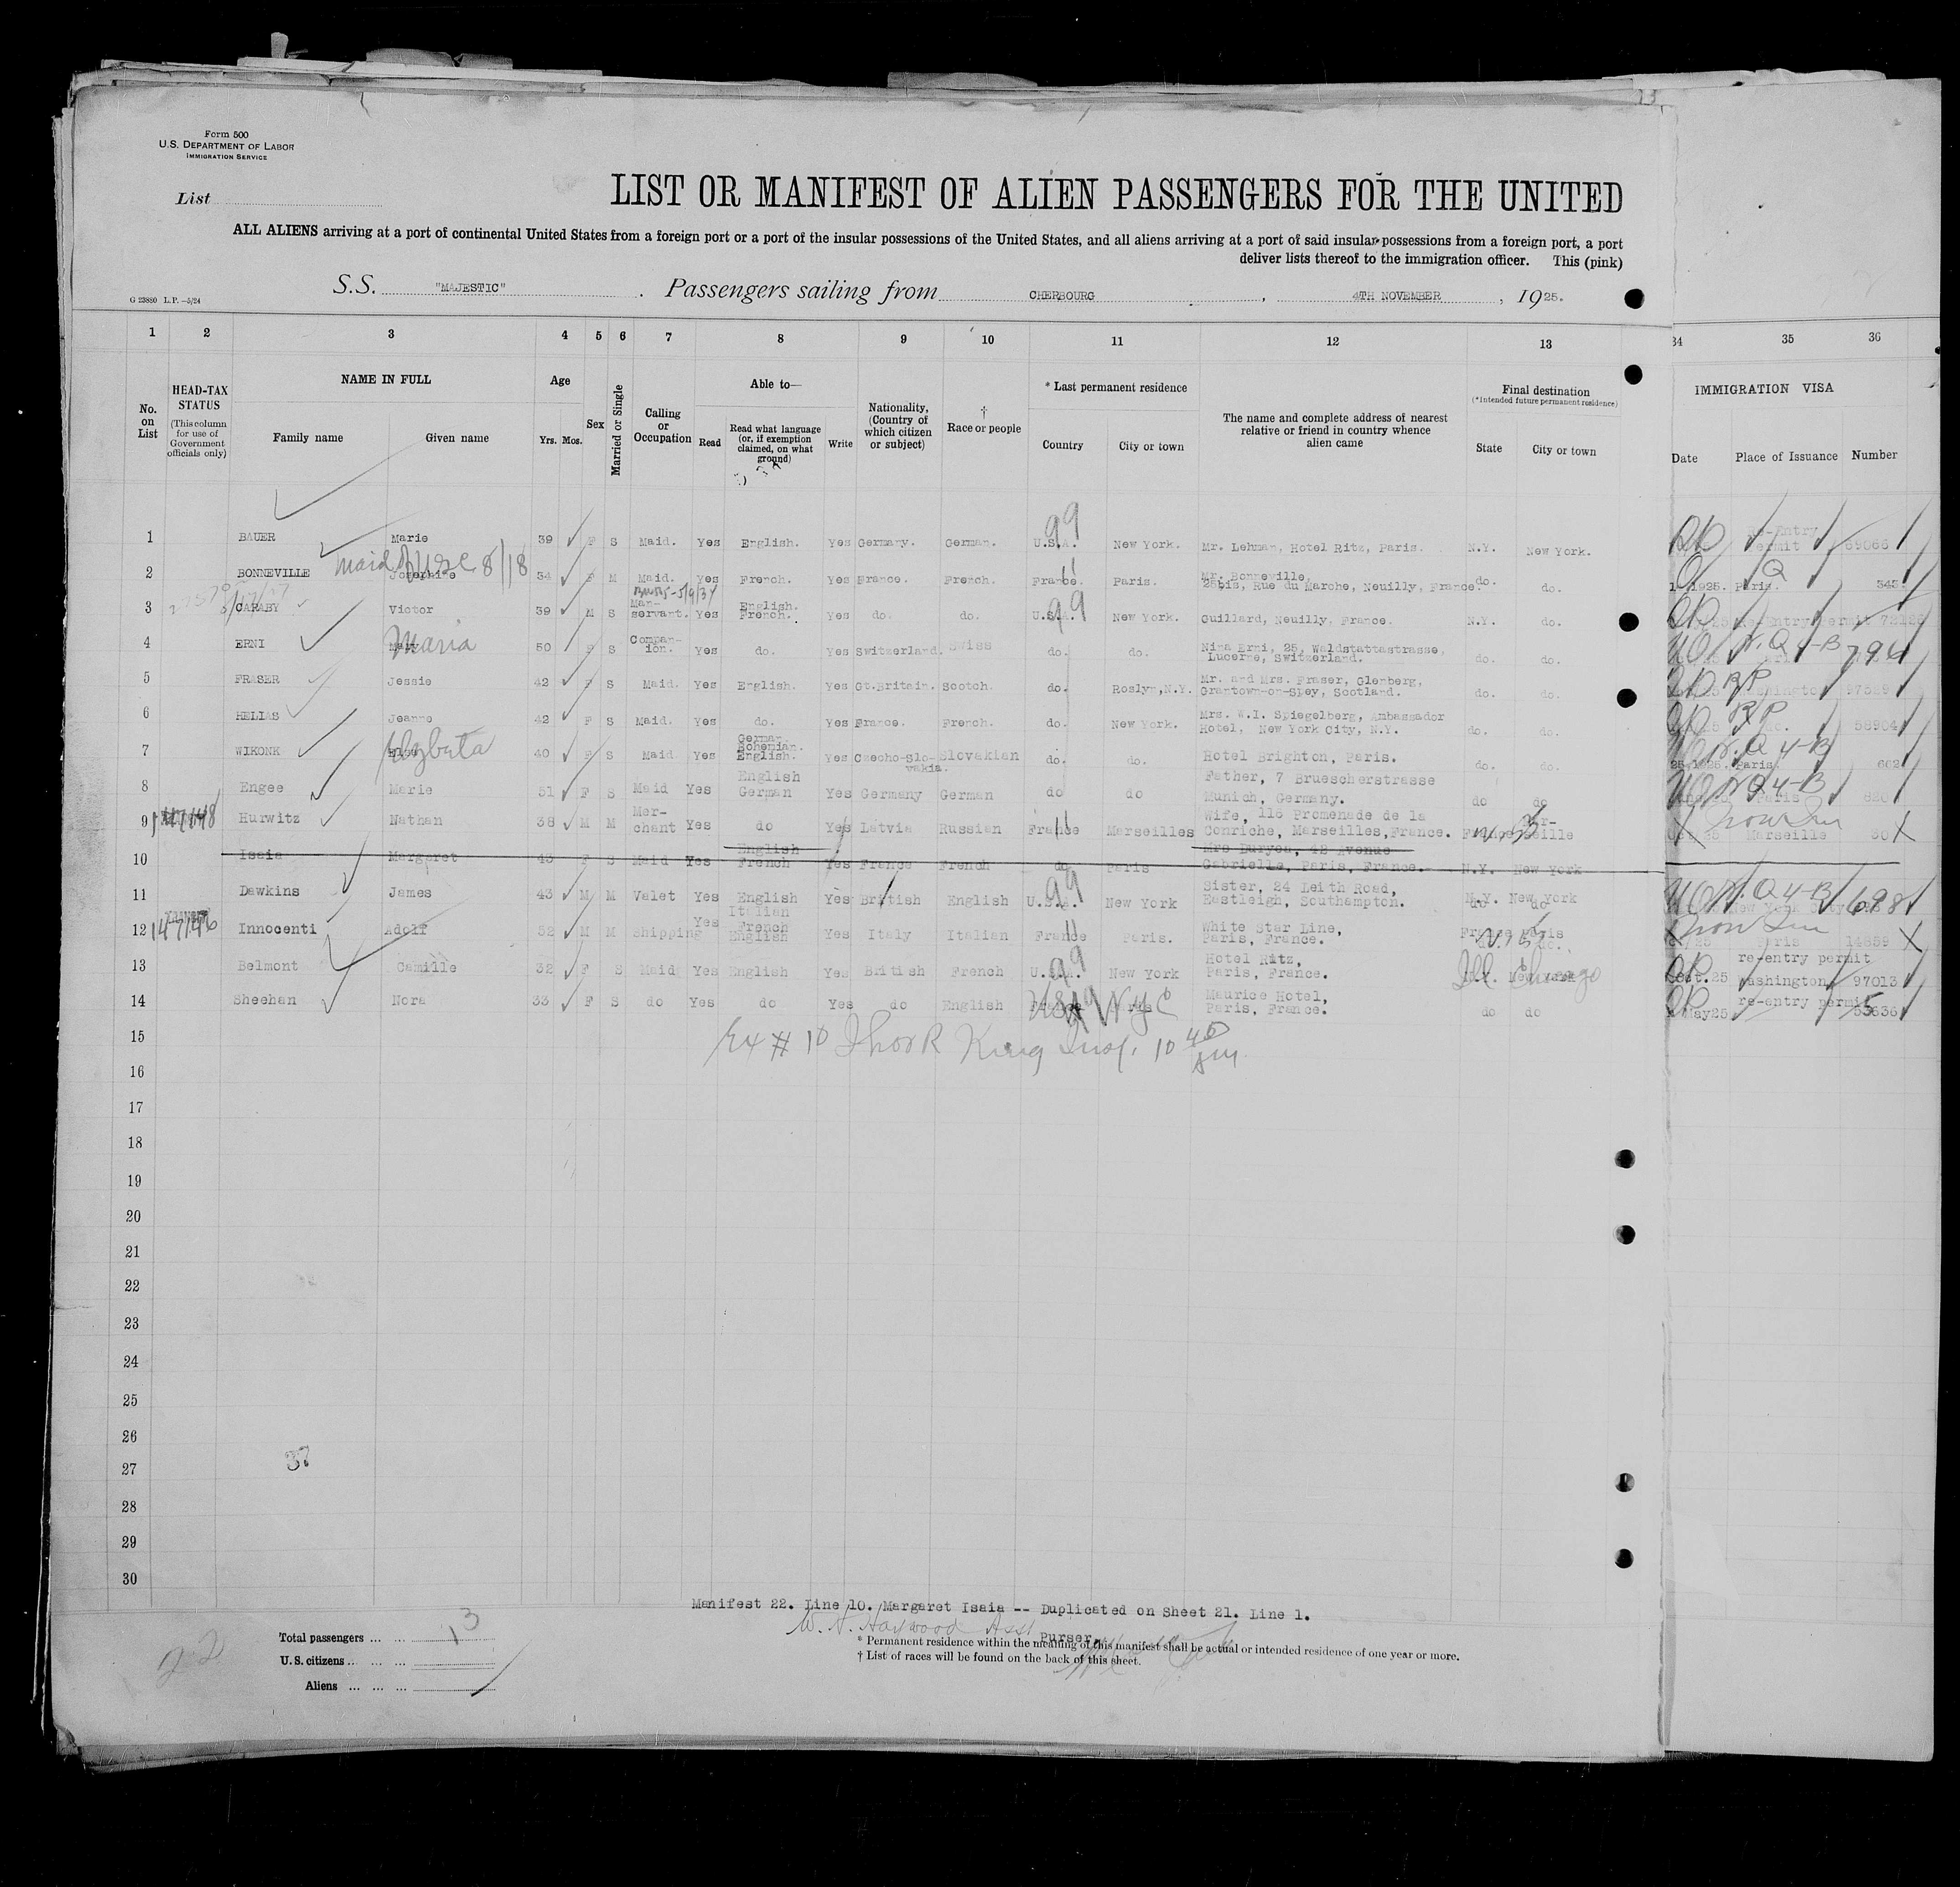 Form 500
U.S. DEPARTMENT OF LABOR
IMMIGRATION SERVICE
List
LIST OR MANIFEST OF ALIEN PASSENGERS FOR THE UNITED
ALL ALIENS arriving at a port of continental United States from a foreign port or a port of the insular possessions of the United States, and all aliens arriving at a port of said insular possessions from a foreign port, a port
deliver lists thereof to the immigration officer. This (pink)
G 23880 L.P. —5/24
S.S. "MAJESTIC". Passengers sailing from CHERBOURG, 4TH NOVEMBER, 1925.
1 2 3 4 5 6 7 8 9 10 11 12 13 34 35 36
No. on List
HEAD-TAX STATUS (This column for use of Government officials only)
NAME IN FULL
Family name Given name
Age
Yrs. Mos.
Sex
Married or Single
Calling or Occupation
Able to—
Read
Read what language (or, if exemption claimed, on what ground)
Write
Nationality, (Country of which citizen or subject)
† Race or people
* Last permanent residence
Country City or town
The name and complete address of nearest relative or friend in country whence alien came
Final destination
(*Intended future permanent residence)
State City or town
IMMIGRATION VISA
Date Place of Issuance Number
1 BAUER Marie 39 F S Maid. Yes English. Yes Germany. German. U.S.A. 99 New York. Mr. Lehman, Hotel Ritz, Paris. N.Y. New York. Re-Entry Permit 69066
2 BONNEVILLE Josephine 34 F M Maid. Yes French. Yes France. French. France. Paris. Mr. Bonneville, 25bis, Rue du Marche, Neuilly, France. do. do. 1925. Paris. 343
3 CARABY Victor 39 M S Man-servant. Yes English. French. Yes do. do. U.S.A. 99 New York. Guillard, Neuilly, France. N.Y. do. Re-Entry Permit
4 ERNI Maria 50 F S Compan-ion. Yes do. Yes Switzerland. Swiss do. do. Nina Erni, 25, Waldstattastrasse, Lucerne, Switzerland. do. do. 794
5 FRASER Jessie 42 F S Maid. Yes English. Yes Gt.Britain. Scotch. do. Roslyn,N.Y. Mr. and Mrs. Fraser, Glenberg, Grantown-on-Spey, Scotland. do. do. RP Washington
6 HELIAS Jeanne 42 F S Maid. Yes do. Yes France. French. do. New York. Mrs. W.I. Spiegelberg, Ambassador Hotel, New York City, N.Y. do. do. RP do. 58904
7 WIKONK 40 F S Maid Yes German. Bohemian. English. Yes Czecho-Slo-vakia. Slovakian do. do. Hotel Brighton, Paris. do. do. 1925. Paris.
8 Engee Marie 51 F S Maid Yes English German Yes Germany German do do Father, 7 Bruescherstrasse Munich, Germany. do do Paris
9 Hurwitz Nathan 38 M M Mer-chant Yes do Yes Latvia Russian France Marseilles Wife, 118 Promenade de la Conriche, Marseilles,France. France Mar-seille Marseille 30
10 Isaia Margaret 43 F S Maid Yes English French Yes France French do Paris Mrs Duryea, 42 Avenue Gabrielle, Paris, France. N.Y. New York
11 Dawkins James 43 M M Valet Yes English Yes British English U.S.A. 99 New York Sister, 24 Leith Road, Eastleigh, Southampton. N.Y. New York New York City 698
12 147146 Innocenti Adolf 52 M M Shipping Yes Italian French English Yes Italy Italian France Paris. White Star Line, Paris, France. France Paris Paris 14659
13 Belmont Camille 32 F S Maid Yes English Yes British French U.S.A. 99 New York Hotel Ritz, Paris, France. Ill Chicago re-entry permit Oct.25 Washington 97013
14 Sheehan Nora 33 F S do Yes do Yes do English USA NYC Maurice Hotel, Paris, France. do do re-entry permit May25 53636
15
16
17
18
19
20
21
22
23
24
25
26
27
28
29
30
37
Manifest 22. Line 10. Margaret Isaia -- Duplicated on Sheet 21. Line 1.
W. H. Haywood Asst Purser.
Total passengers ... ... 13
U. S. citizens ... ... ...
Aliens ... ... ...
22
* Permanent residence within the meaning of this manifest shall be actual or intended residence of one year or more.
† List of races will be found on the back of this sheet.